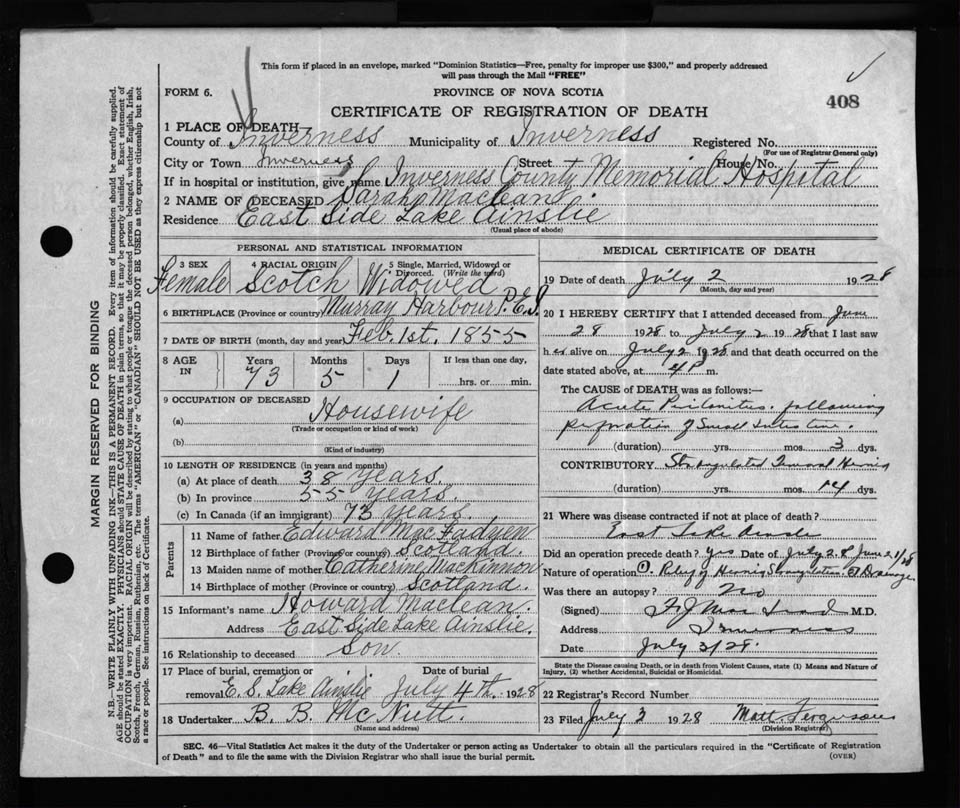 This form if placed in an envelope, marked "Dominion Statistics—Free, penalty for improper use $300," and properly addressed
will pass through the Mail "FREE"
FORM 6.
PROVINCE OF NOVA SCOTIA
408
CERTIFICATE OF REGISTRATION OF DEATH
1 PLACE OF DEATH—
County of Inverness Municipality of Inverness Registered No.
(For use of Registrar General only)
City or Town Inverness Street House No.
If in hospital or institution, give name Inverness County Memorial Hospital
2 NAME OF DECEASED Sarah Maclean
Residence East Side Lake Ainslie
(Usual place of abode)
PERSONAL AND STATISTICAL INFORMATION
3 SEX 4 RACIAL ORIGIN 5 Single, Married, Widowed or Divorced. (Write the word)
Female Scotch Widowed
6 BIRTHPLACE (Province or country) Murray Harbour P.E.I.
7 DATE OF BIRTH (month, day and year) Feb. 1st, 1855
8 AGE IN Years 73 Months 5 Days 1 If less than one day, hrs. or min.
9 OCCUPATION OF DECEASED
(a) Housewife
(Trade or occupation or kind of work)
(b)
(Kind of industry)
10 LENGTH OF RESIDENCE (in years and months)
(a) At place of death 38 years.
(b) In province 55 years.
(c) In Canada (if an immigrant) 73 years.
Parents
11 Name of father Edward MacFadyen
12 Birthplace of father (Province or country) Scotland.
13 Maiden name of mother Catherine Mackinnon
14 Birthplace of mother (Province or country) Scotland
15 Informant's name Howard Maclean.
Address East Side Lake Ainslie.
16 Relationship to deceased Son.
17 Place of burial, cremation or Date of burial
removal E. S. Lake Ainslie July 4th. 1928
18 Undertaker B. B. McNutt.
(Name and address)
MEDICAL CERTIFICATE OF DEATH
19 Date of death July 2 1928
(Month, day and year)
20 I HEREBY CERTIFY that I attended deceased from June
28 1928 to July 2 1928 that I last saw
her alive on July 2 1928 and that death occurred on the
date stated above, at 4 P m.
The CAUSE OF DEATH was as follows:—
Acute Peritonitis. following
perforation of Small Intestine.
(duration) yrs. mos. 3 dys.
CONTRIBUTORY Strangulated Femoral Hernia
(duration) yrs. mos. 14 dys.
21 Where was disease contracted if not at place of death?
East Lake Ainslie
Did an operation precede death? Yes Date of July 2. & June 28
Nature of operation ① Relief of Hernia Strangulation Drainage
Was there an autopsy? No
(Signed) M.D.
Address Inverness
Date July 3/28.
State the Disease causing Death, or in death from Violent Causes, state (1) Means and Nature of
Injury, (2) whether Accidental, Suicidal or Homicidal.
22 Registrar's Record Number
23 Filed July 3 1928 Matt. Ferguson
(Division Registrar)
SEC. 46—Vital Statistics Act makes it the duty of the Undertaker or person acting as Undertaker to obtain all the particulars required in the "Certificate of Registration
of Death" and to file the same with the Division Registrar who shall issue the burial permit.
(OVER)
MARGIN RESERVED FOR BINDING
N.B.—WRITE PLAINLY WITH UNFADING INK—THIS IS A PERMANENT RECORD. Every item of information should be carefully supplied.
AGE should be stated EXACTLY. PHYSICIANS should STATE CAUSE OF DEATH in plain terms, so that it may be properly classified. Exact statement of
OCCUPATION is very important. RACIAL ORIGIN will be described by stating to what people or tongue the deceased person belonged, whether English, Irish,
Scotch, French, German, Russian, Ruthenian, etc. The terms "AMERICAN" or "CANADIAN" SHOULD NOT BE USED as they express citizenship but not
a race or people. See instructions on back of Certificate.